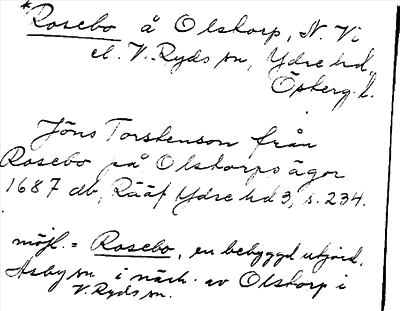 *Rosebo å Olstorp, N. Vi
el. V. Ryds sn, Ydre hd,
Östergl.
Jöns Torstenson från
Rosebo på Olstorps ägor
1687 db, Rääf Ydre hd 3, s. 234.
möjl. = Rosebo, en bebyggd utjord,
Asby sn i närh. av Olstorp i
V. Ryds sn.